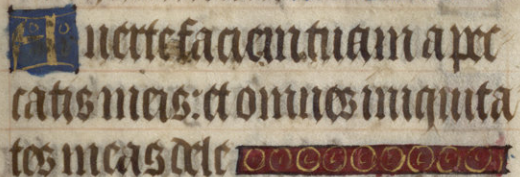 Auerte faciem tuam a pec
catis meis: et omnes iniquita
tes meas dele